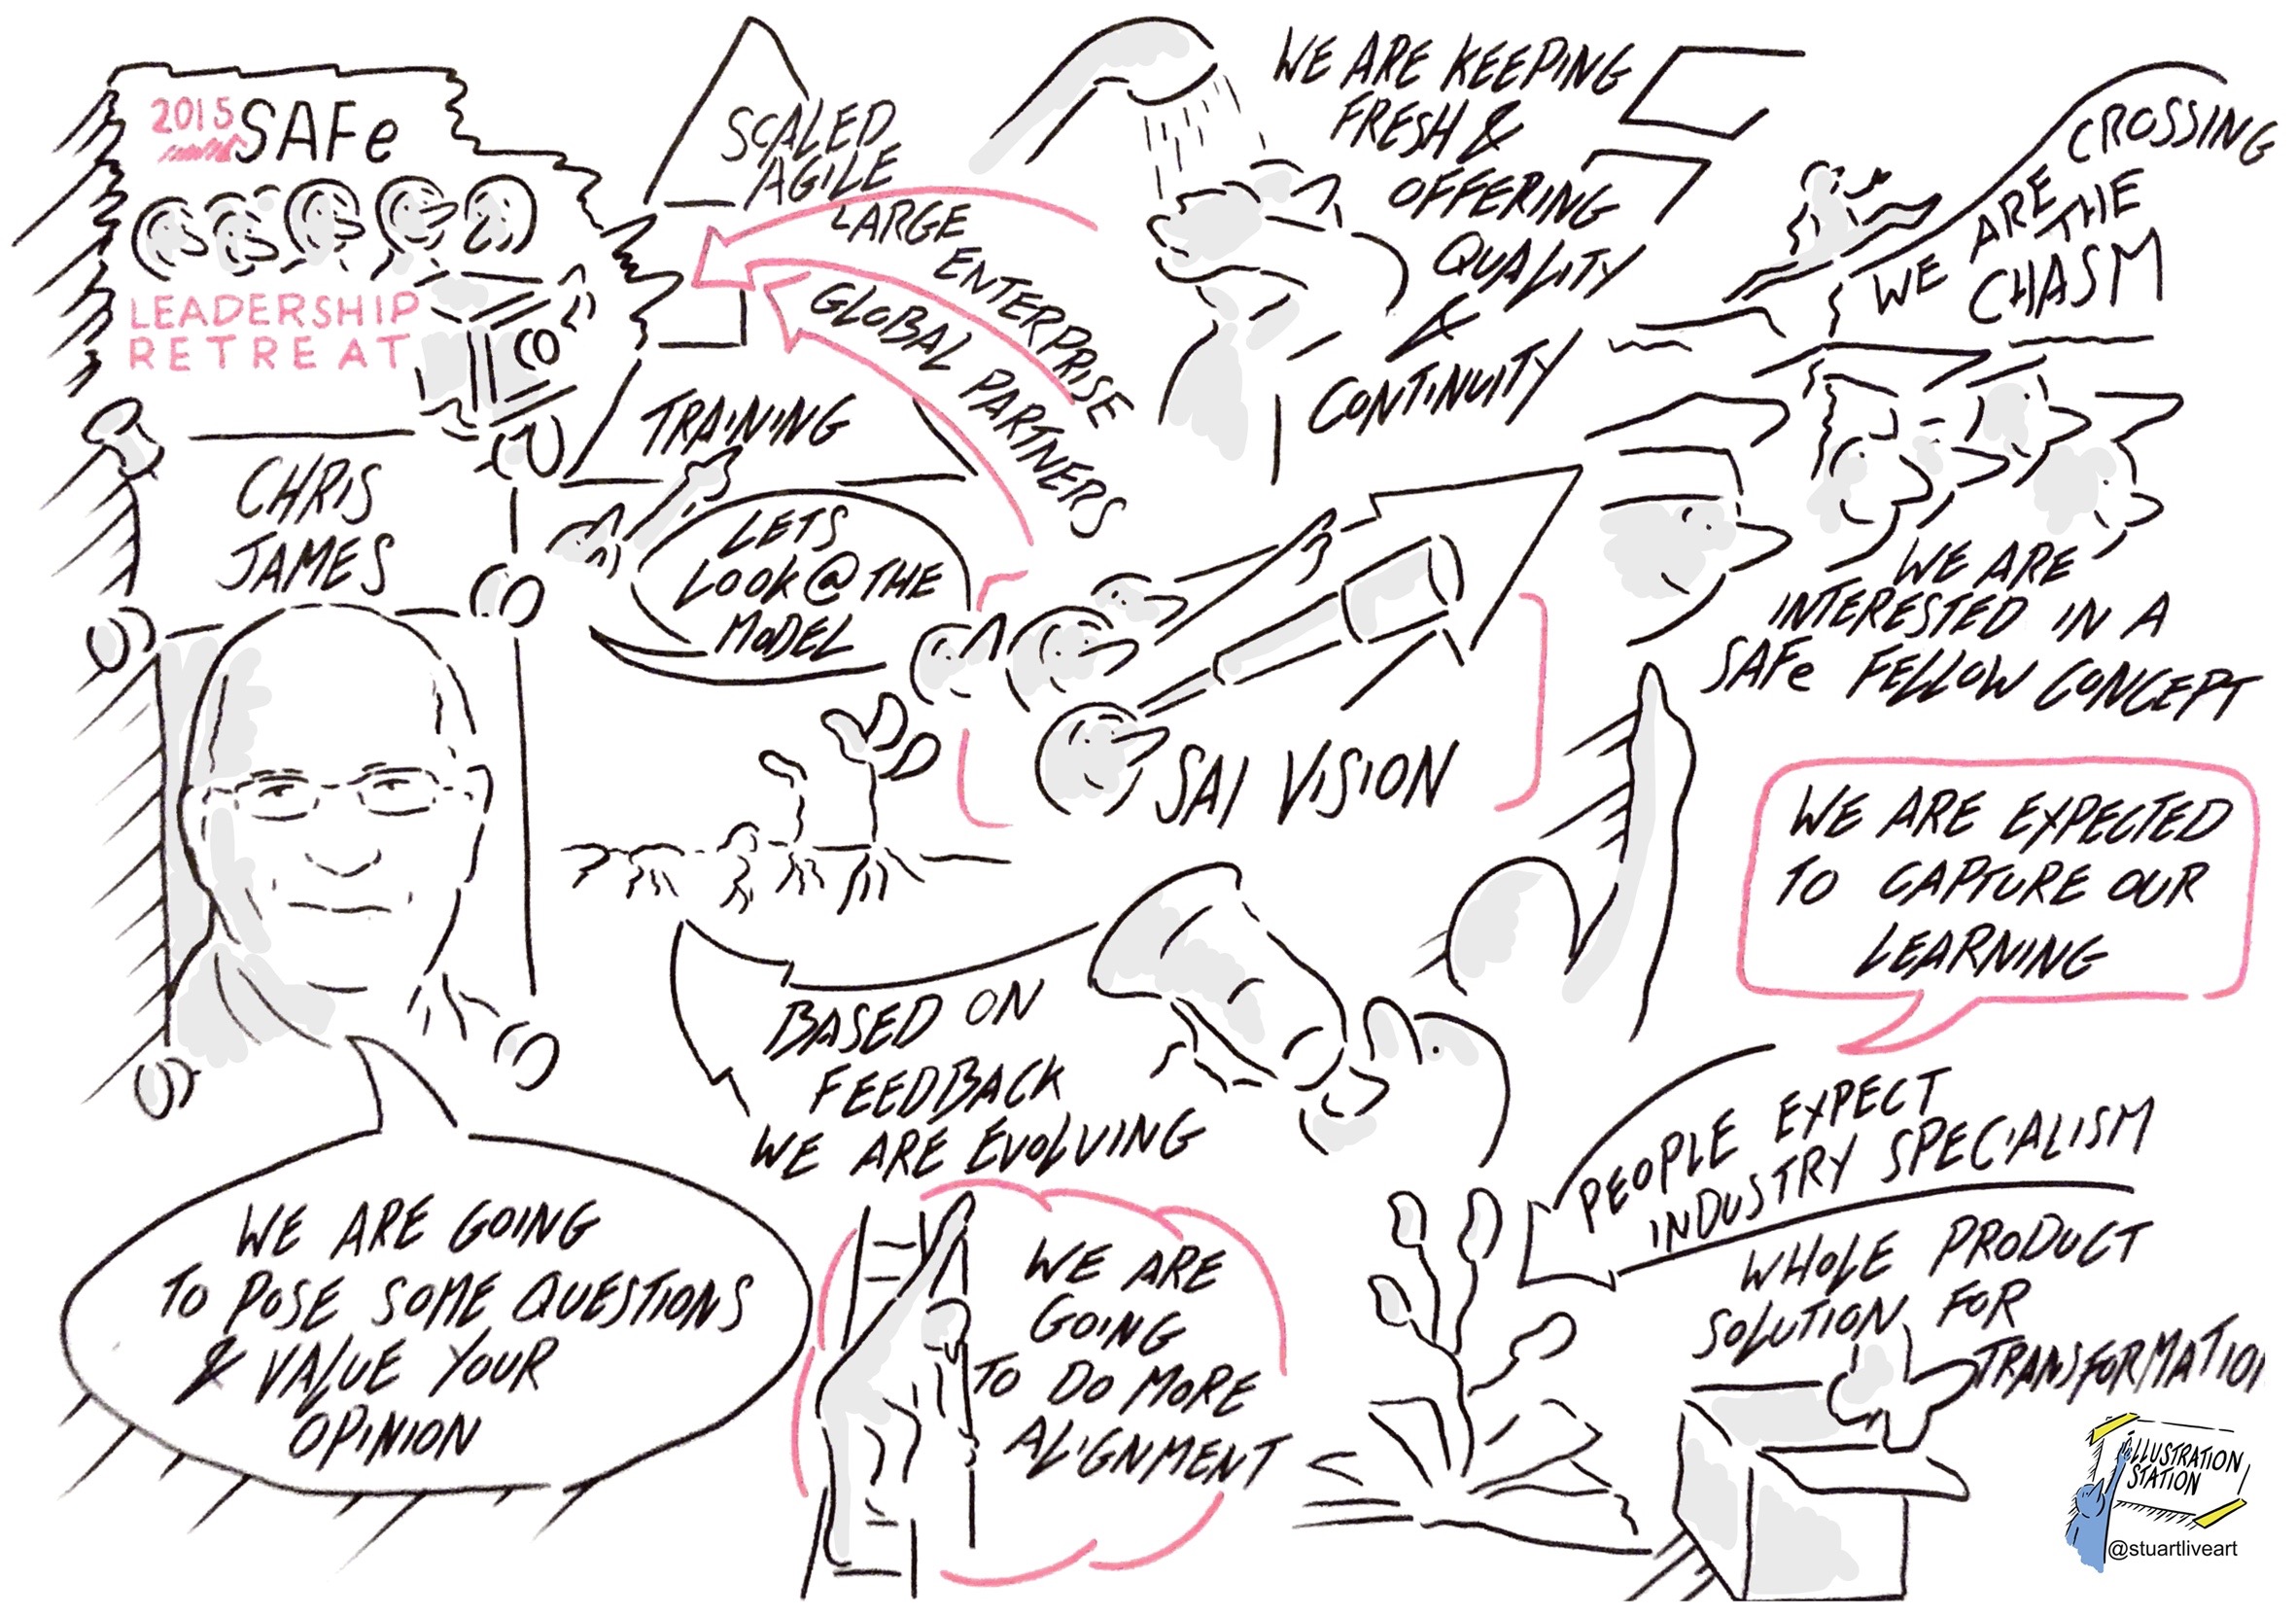 2015
SAFe
LEADERSHIP
RETREAT
CHRIS
JAMES
WE ARE GOING
TO POSE SOME QUESTIONS
& VALUE YOUR
OPINION
SCALED
AGILE
LARGE ENTERPRISE
GLOBAL PARTNERS
TRAINING
LETS
LOOK @ THE
MODEL
WE ARE KEEPING
FRESH &
OFFERING
QUALITY
&
CONTINUITY
WE ARE CROSSING
THE
CHASM
SAI VISION
WE ARE
INTERESTED IN A
SAFe FELLOW CONCEPT
WE ARE EXPECTED
TO CAPTURE OUR
LEARNING
BASED ON
FEEDBACK
WE ARE EVOLVING
WE ARE
GOING
TO DO MORE
ALIGNMENT
PEOPLE EXPECT
INDUSTRY SPECIALISM
WHOLE PRODUCT
SOLUTION FOR
TRANSFORMATION
ILLUSTRATION
STATION
@stuartliveart